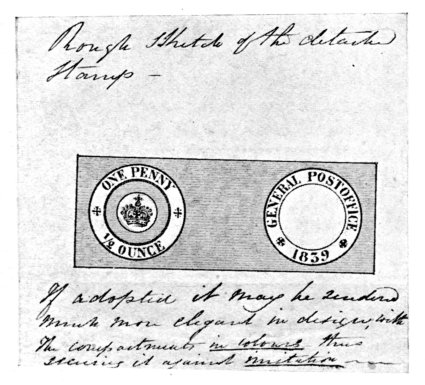 Rough Sketch of the detached
Stamp —
ONE PENNY
1/2 OUNCE
GENERAL POSTOFFICE
1839
If adopted it may be rendered
much more elegant in design, with
the compartments in colours thus
securing it against imitation —